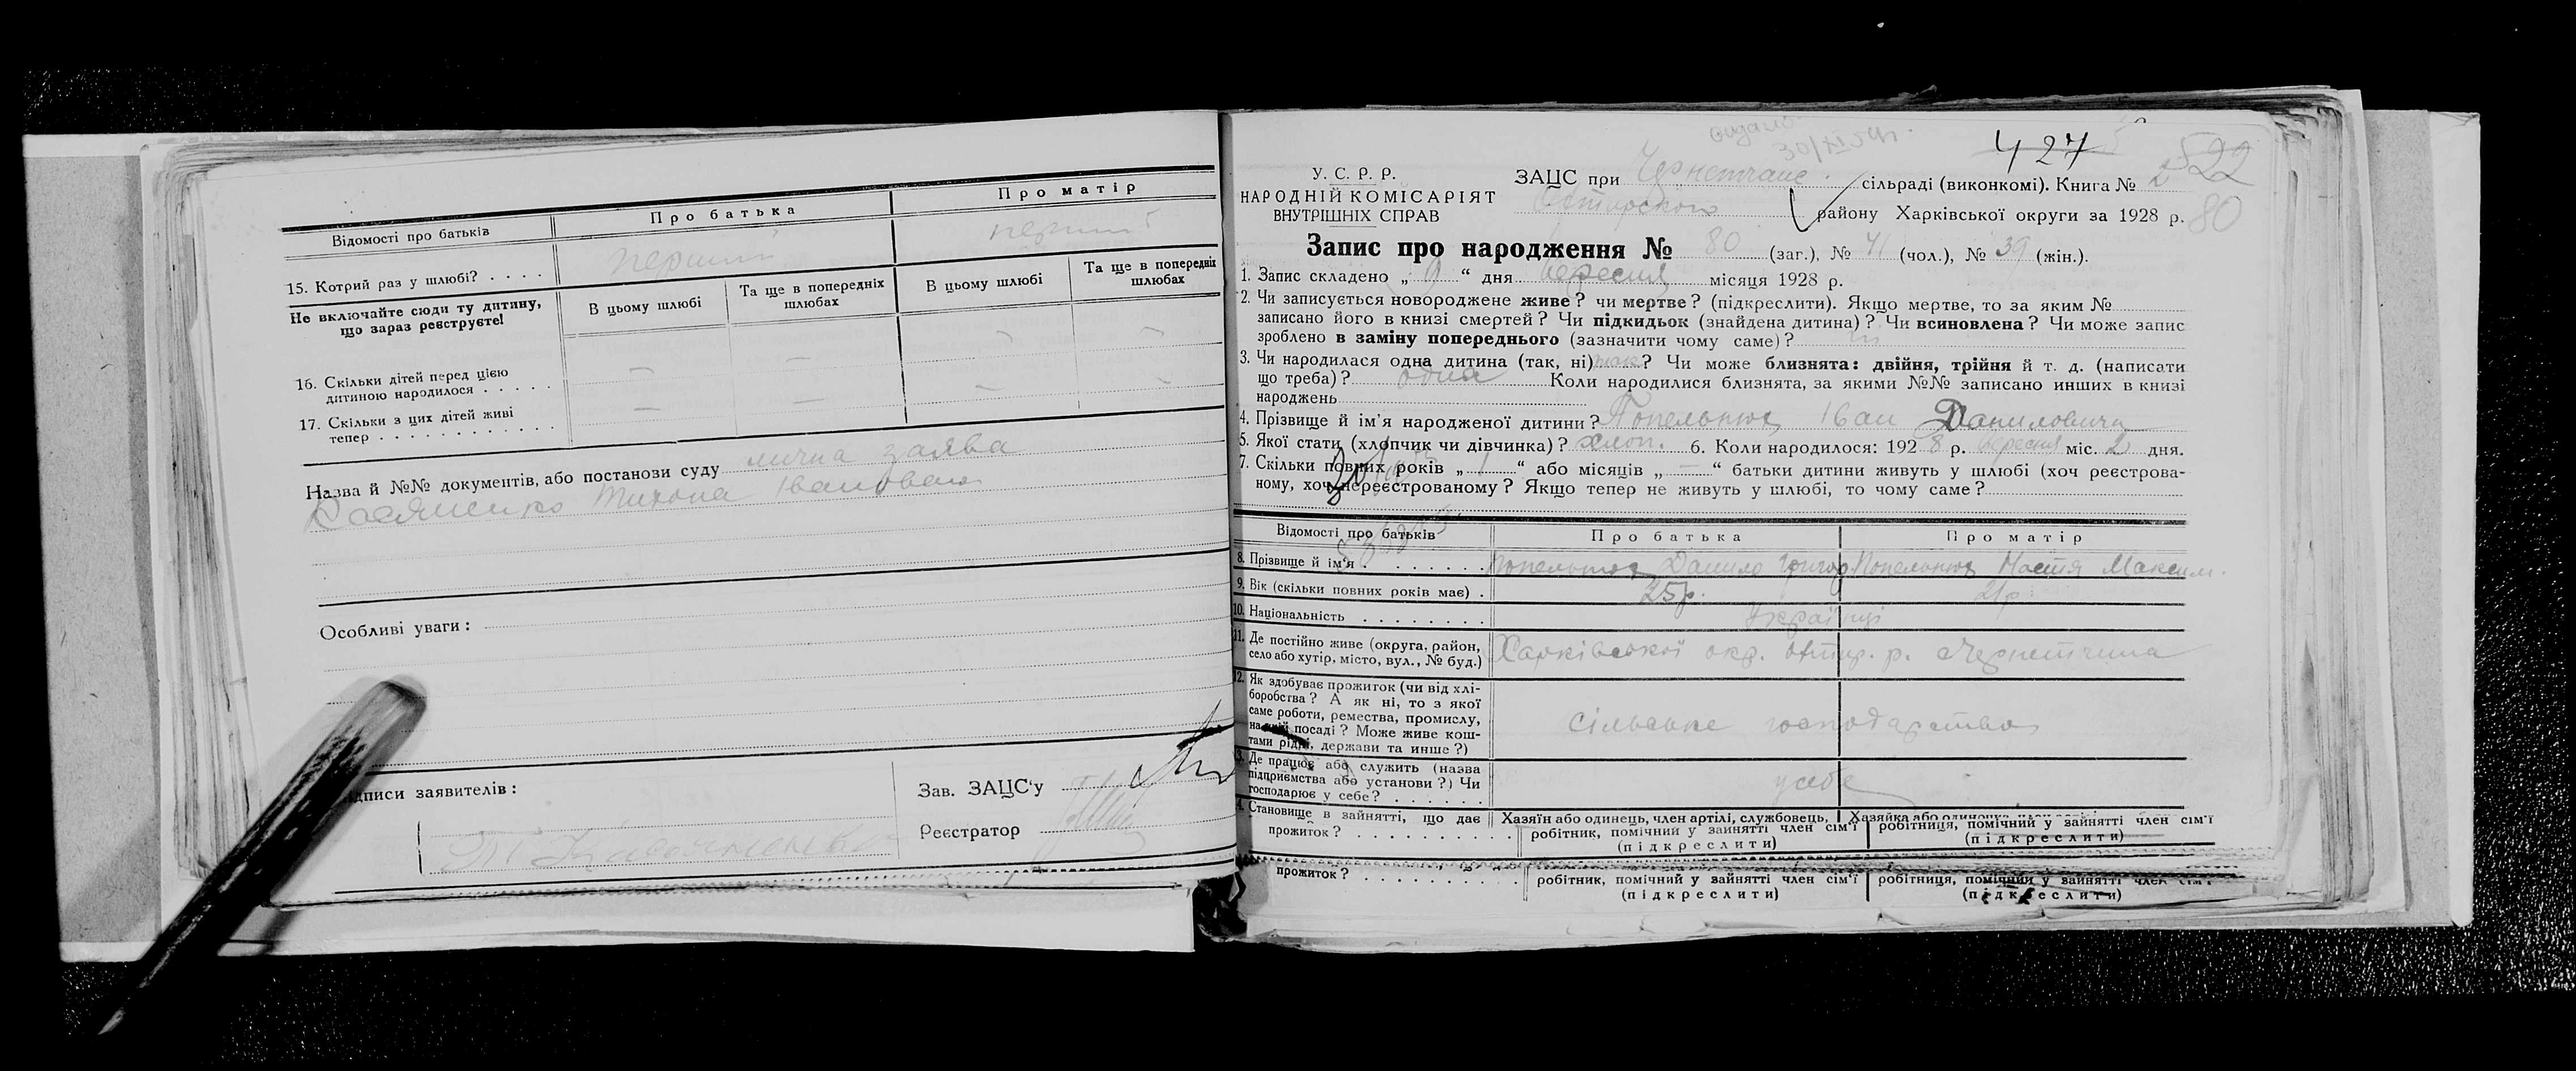 Відомості про батьків Про батька Про матір
15. Котрий раз у шлюбі? . . . . перший перший
Не включайте сюди ту дитину, що зараз реєструєте!
В цьому шлюбі Та ще в попередніх шлюбах В цьому шлюбі Та ще в попередніх шлюбах
16. Скільки дітей перед цією
дитиною народилося . . . . . — — — —
17. Скільки з цих дітей живі
тепер . . . . . . . . . . . . — — — —
Назва й №№ документів, або постанови суду лична заява
Тихона Івановича
Особливі уваги :
дписи заявителів :
Зав. ЗАЦС'у
Реєстратор
30/XI
427
522
80
У. С. Р. Р.
НАРОДНІЙ КОМІСАРІЯТ
ВНУТРІШНІХ СПРАВ
ЗАЦС при сільраді (виконкомі). Книга № 2
району Харківської округи за 1928 р.
Запис про народження № 80 (заг.), № 41 (чол.), № 39 (жін.).
1. Запис складено „ 9 “ дня вересня місяця 1928 р.
2. Чи записується новороджене живе? чи мертве? (підкреслити). Якщо мертве, то за яким №
записано його в книзі смертей? Чи підкидьок (знайдена дитина)? Чи всиновлена? Чи може запис
зроблено в заміну попереднього (зазначити чому саме)?
3. Чи народилася одна дитина (так, ні) так? Чи може близнята: двійня, трійня й т. д. (написати
що треба)? одна Коли народилися близнята, за якими №№ записано инших в книзі
народжень
4. Прізвище й ім'я народженої дитини? Попельнюх Іван Данилович
5. Якої стати (хлопчик чи дівчинка)? хлоп. 6. Коли народилося: 1928 р. вересня міс. 2 дня.
7. Скільки повних років „ 1 “ або місяців „ — “ батьки дитини живуть у шлюбі (хоч реєстрова-
ному, хоч нереєстрованому? Якщо тепер не живуть у шлюбі, то чому саме?
Відомості про батьків Про батька Про матір
8. Прізвище й ім'я . . . . . . Попельнюх Данило Григор. Попельнюх Настя Максим.
9. Вік (скільки повних років має) . 25 р. 21 р.
10. Національність . . . . . . . . Українці
11. Де постійно живе (округа, район,
село або хутір, місто, вул., № буд.) Харківської окр. р. Чернетчина
12. Як здобуває прожиток (чи від хлі-
боробства? А як ні, то з якої
саме роботи, ремества, промислу,
на якій посаді? Може живе кош-
тами рідні, держави та инше?) сільське господарство
13. Де працює або служить (назва
підприємства або установи?) Чи
господарює у себе? . . . . . . у себе
14. Становище в зайнятті, що дає
прожиток? . . . . . . . . . .
Хазяїн або одинець, член артілі, службовець,
робітник, помічний у зайнятті член сім'ї
(підкреслити)
Хазяйка або
робітниця, помічний у зайнятті член сім'ї
(підкреслити)
прожиток? . . . . . . . . . . робітник, помічний у зайнятті член сім'ї робітниця, помічний у зайнятті член сім'ї
(підкреслити) (підкреслити)